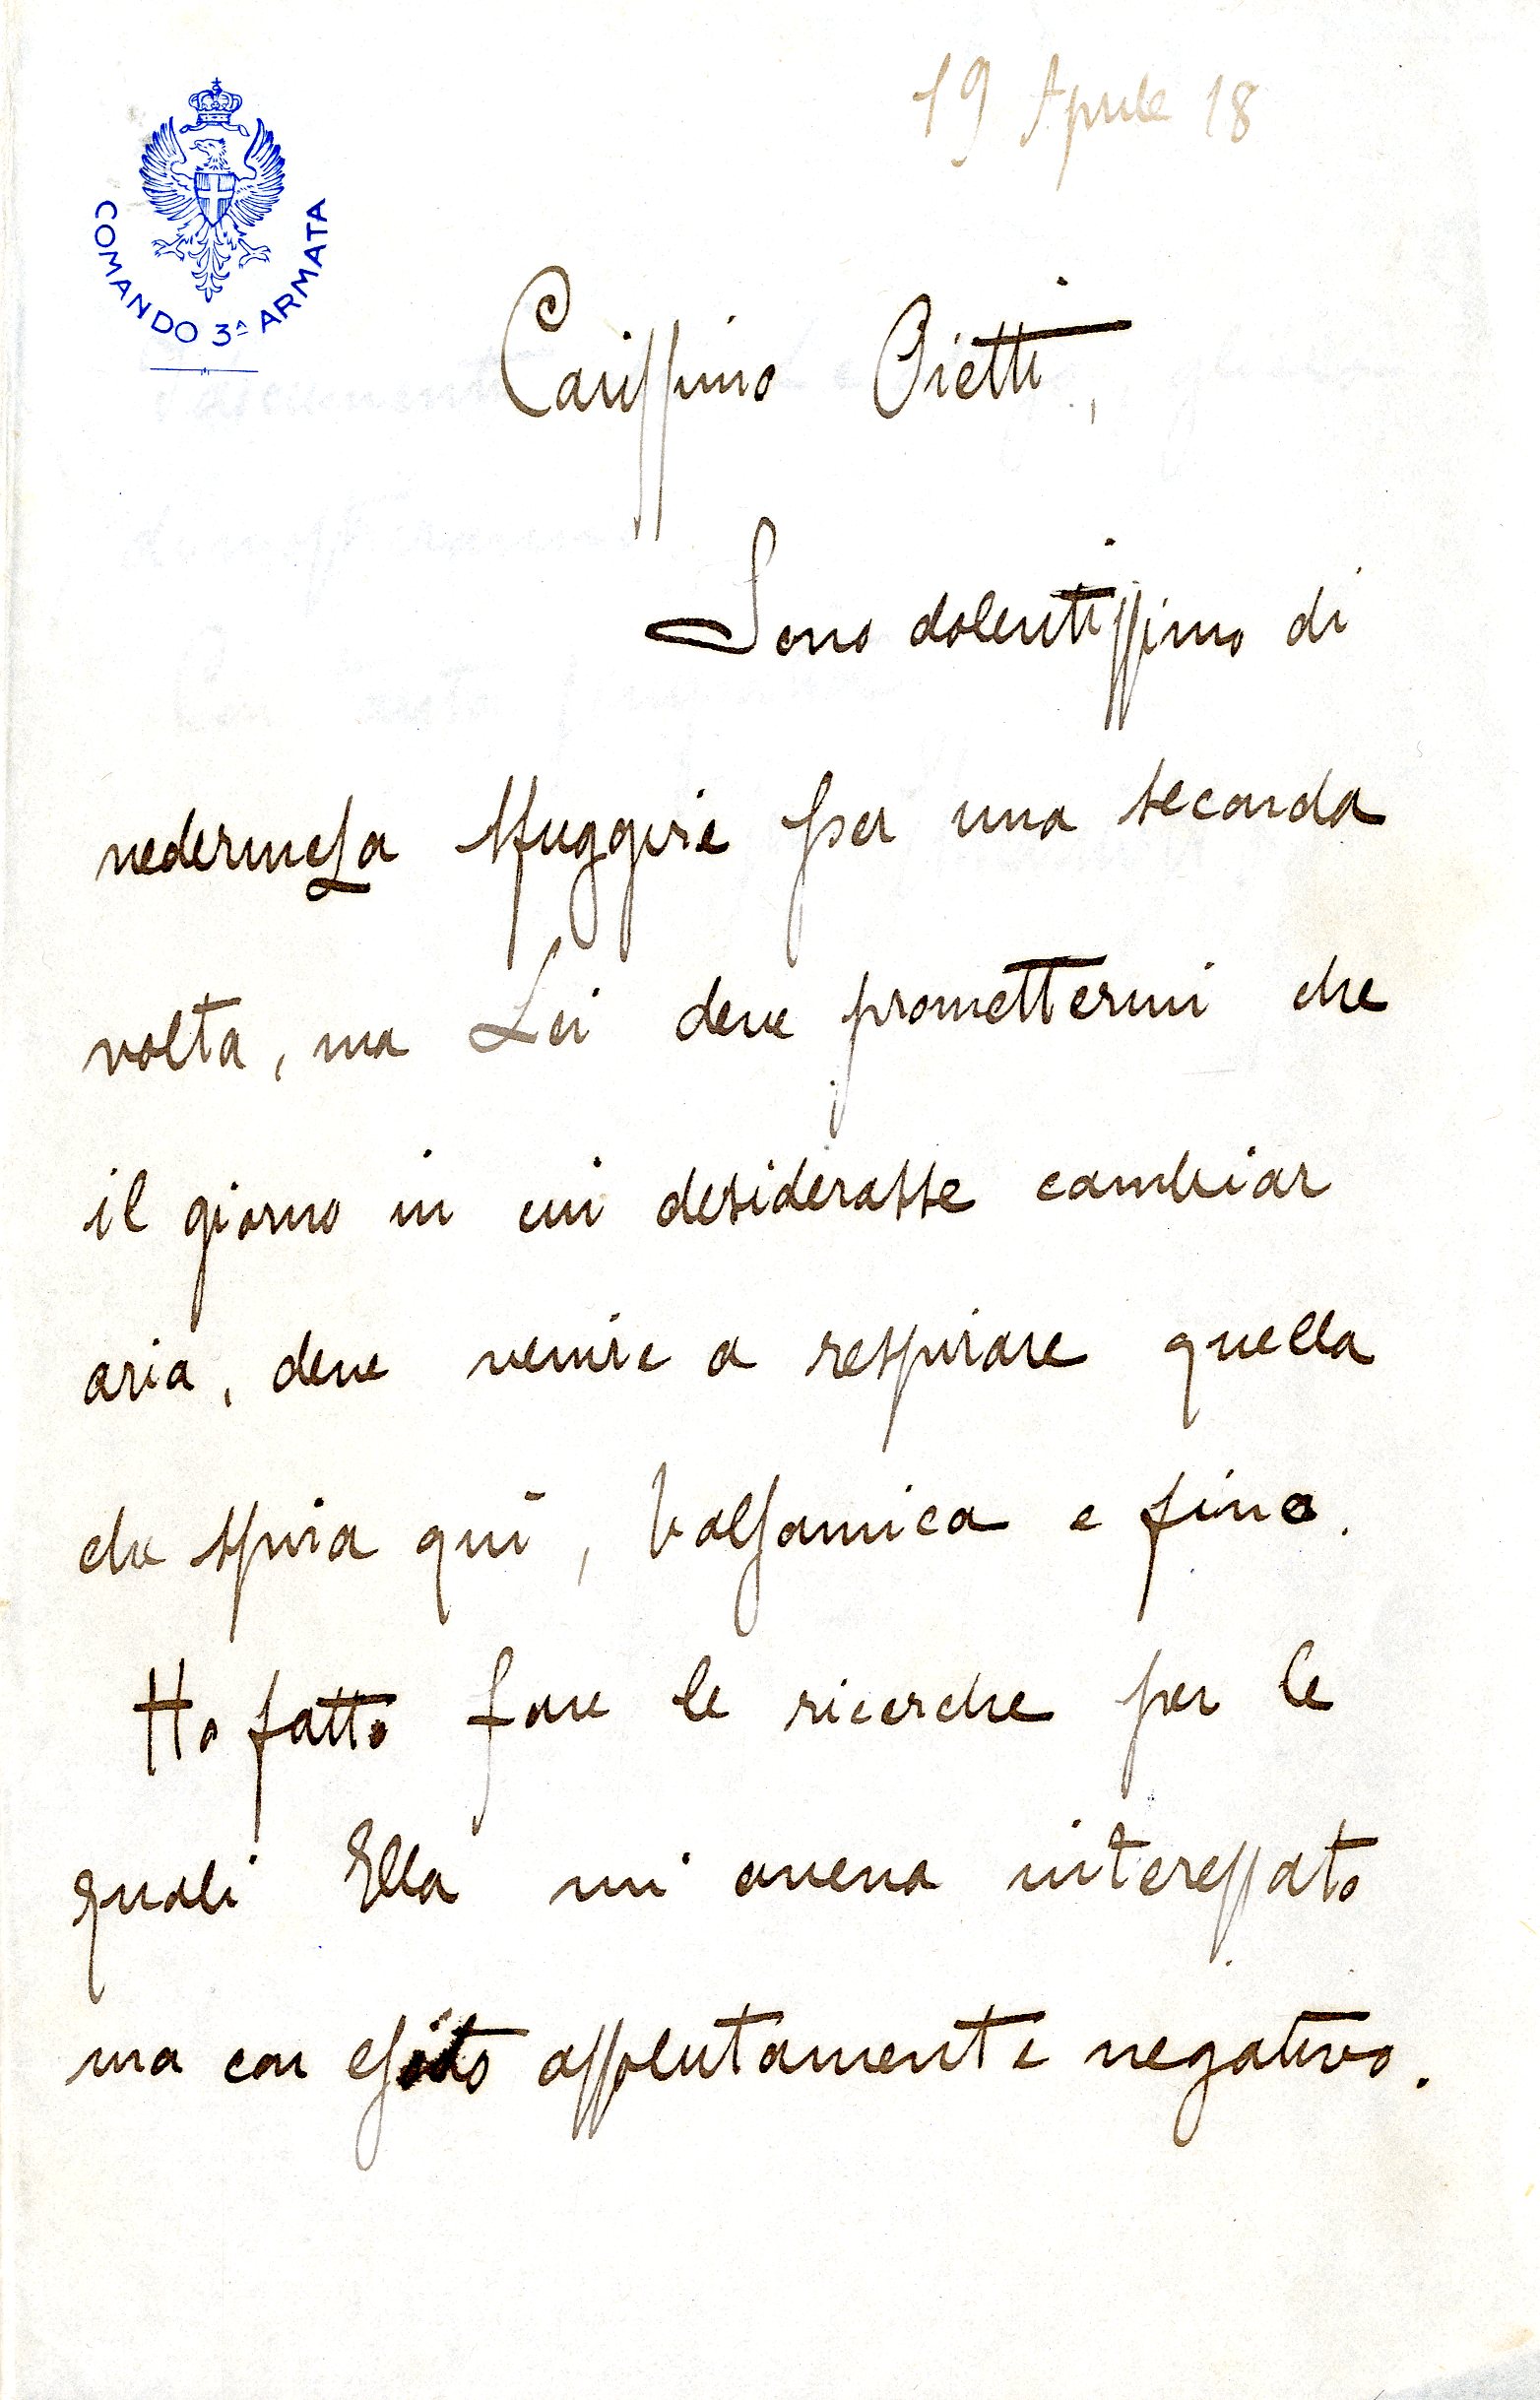 19 Aprile 18
COMANDO 3ª ARMATA
Carissimo Ojetti,
Sono dolentissimo di
vedermeLa sfuggire per una seconda
volta, ma Lei deve promettermi che
il giorno in cui desiderasse cambiar
aria, deve venire a respirare quella
che spira qui, balsamica e fine.
Ho fatto fare le ricerche per le
quali Ella mi aveva interessato
ma con esito assolutamente negativo.